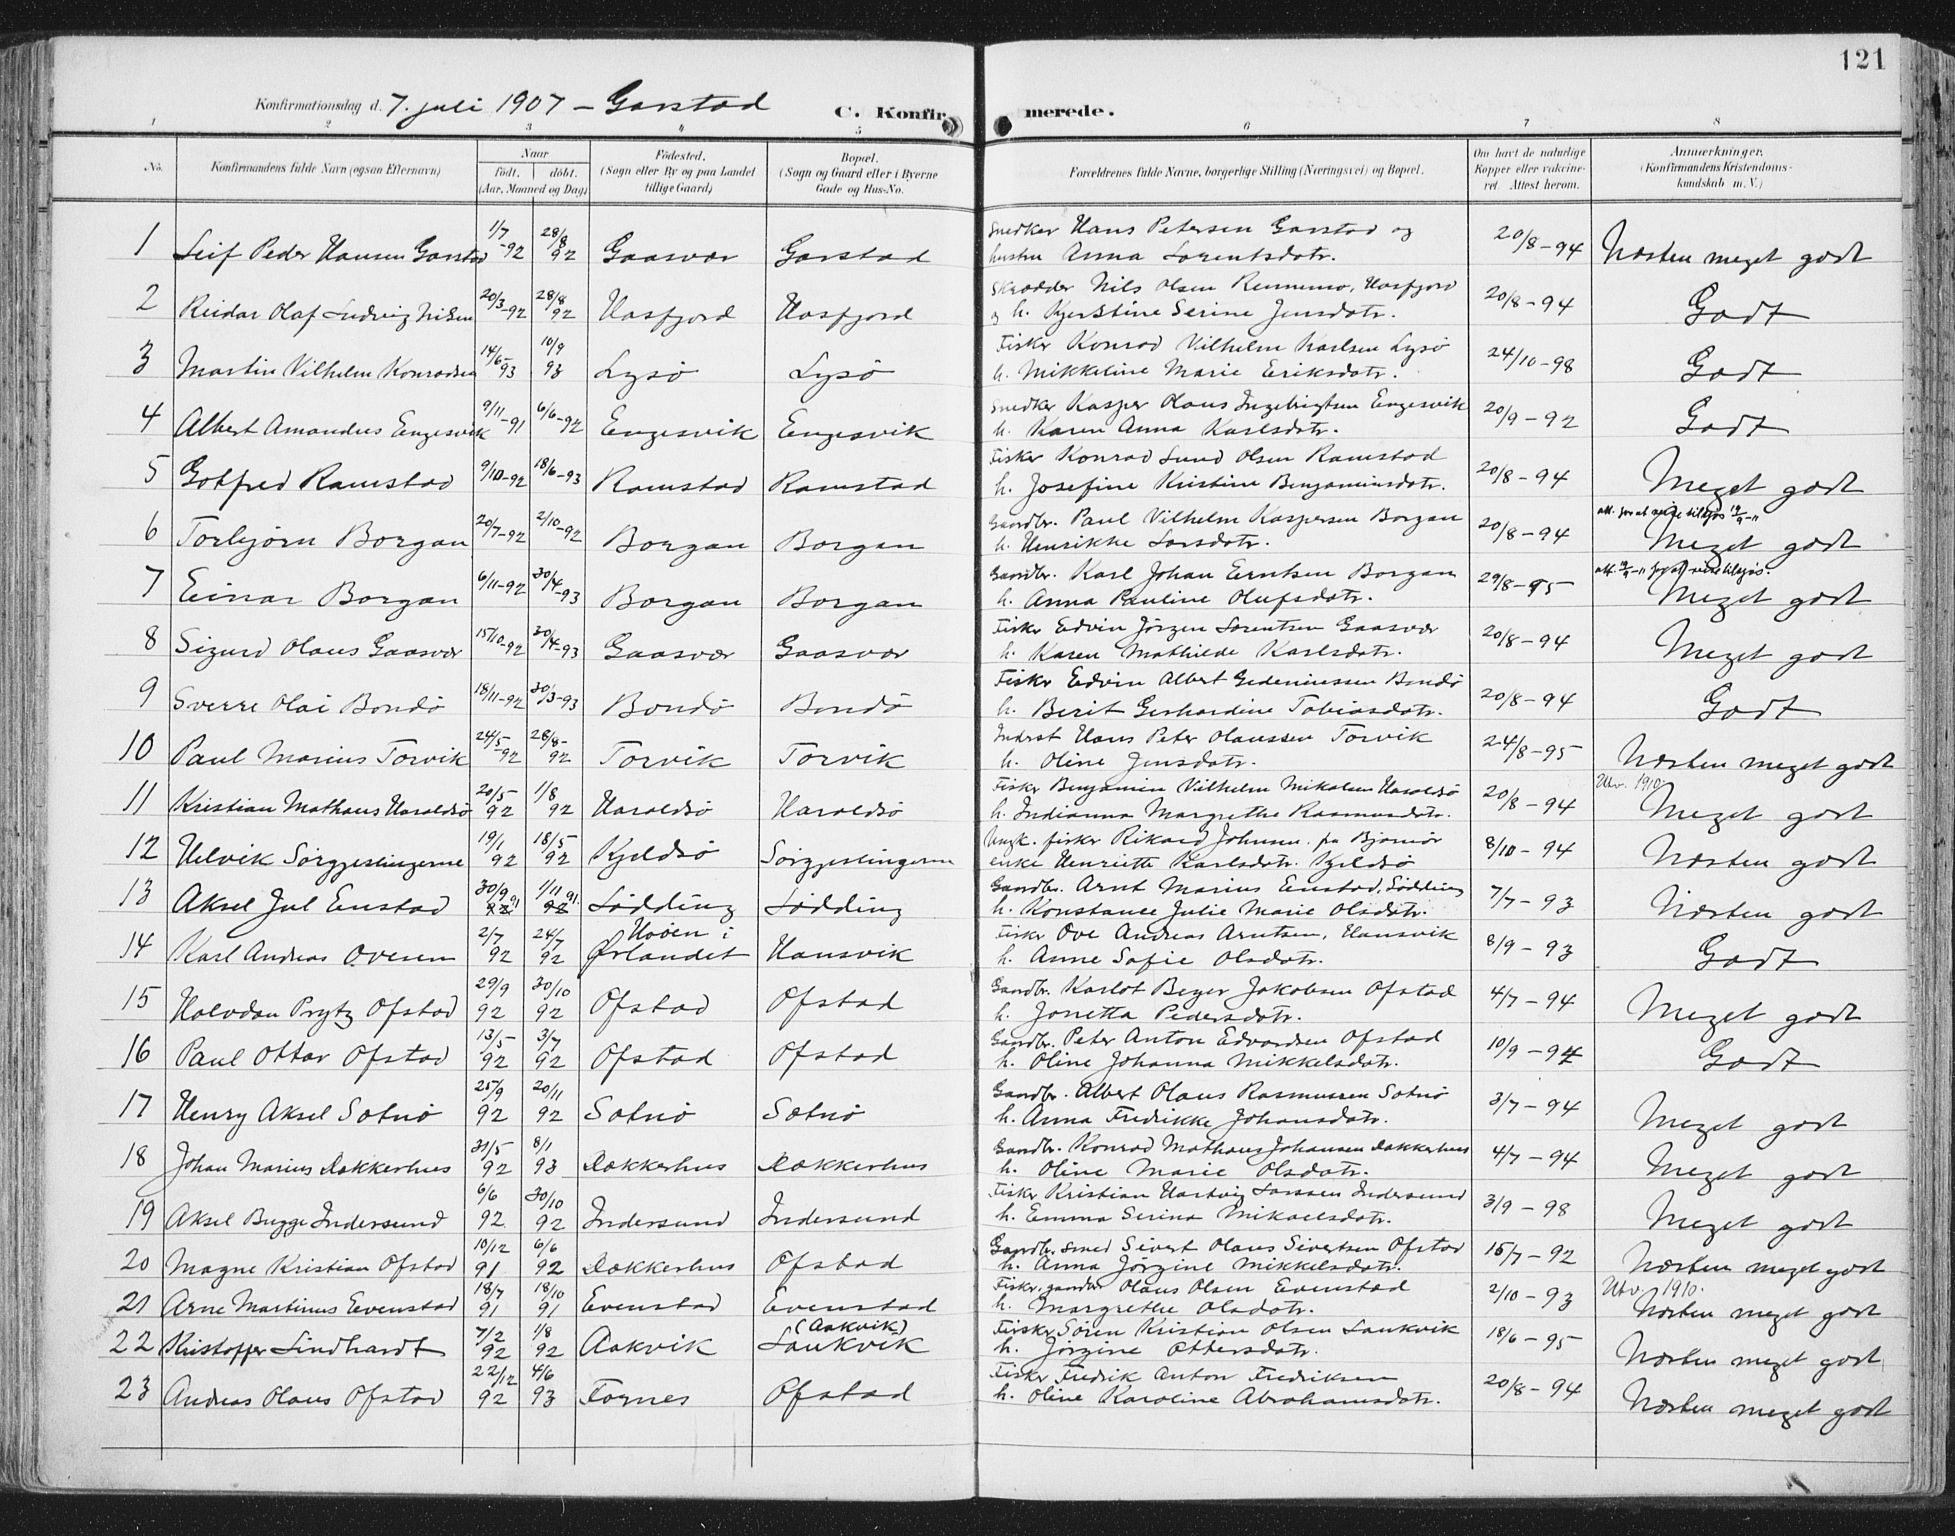 121
Konfirmationsdag d. 7. juli 1907 – Garstad C. Konfirmerede.
1 2 3 4 5 6 7 8
No. Konfirmandens fulde Navn (ogsaa Efternavn) Naar født. døbt. (Aar, Maaned og Dag) Fødested. (Sogn eller By og paa Landet tillige Gaard) Bopæl. (Sogn og Gaard eller i Byerne Gade og Hus-No. Forældrenes fulde Navne, borgerlige Stilling (Næringsvei) og Bopæl. Om havt de naturlige Kopper eller vaccineret. Attest herom. Anmærkninger. (Konfirmandens Kristendomskundskab m. V.)
1 Leif Peder Hansen Garstad 1/7-92 28/8 92 Gaasvær Garstad Snedker Hans Petersen Garstad og hustru Anna Lorentsdatr. 20/8-94 Næsten meget godt
2 Reidar Olaf Ludvig Nilsen 20/3-92 28/8 92 Hasfjord Hasfjord Skrædder Nils Olsen Hasfjord og h. Kjerstine Serine Jensdatr. 20/8-94 Godt
3 Martin Vilhelm Konradsen 14/6-93 10/9 93 Lysø Lysø Fisker Konrad Vilhelm Karlsen Lysø h. Mikkeline Marie Eriksdatr. 24/10-98 Godt
4 Albert Amandus Engesvik 9/11-91 6/6-92 Engesvik Engesvik Snedker Kasper Olaus Ingebrigtsen Engesvik h. Karen Anna Karlsdatr. 20/9-92 Godt
5 Gotfred Ramstad 9/10-92 18/6-93 Ramstad Ramstad Fisker Konrad Lund Olsen Ramstad h. Josefine Kristine Benjaminsdatr. 20/8-94 Meget godt
6 Torbjørn Borgan 20/7-92 2/10-92 Borgan Borgan Gaardbr. Paul Vilhelm Kaspersen Borgan h. Henrikke Larsdatr. 20/8-94 Meget godt
7 Einar Borgan 6/11-92 30/4-93 Borgan Borgan Gaardbr. Karl Johan Erntsen Borgan h. Anna Pauline Olufsdatr. 29/8-95 Meget godt
8 Sigurd Olaus Gaasvær 15/10-92 30/4-93 Gaasvær Gaasvær Fisker Edvin Jørgen Lorentsen Gaasvær h. Karen Mathilde Karlsdatr. 20/8-94 Meget godt
9 Sverre Olai Bondø 18/11-92 30/3-93 Bondø Bondø Fisker Edvin Albert Bondø h. Berit Gerhardine Tobiasdatr. 20/8-94 Godt
10 Paul Marius Torvik 24/5-92 28/8-92 Torvik Torvik Inderst Hans Peter Olaussen Torvik h. Oline Jensdatr. 24/8-95 Næsten meget godt
11 Kristian Mathæus Haraldsø 20/5 92 1/8 92 Haraldsø Haraldsø Fisker Benjamin Vilhelm Mikalsen Haraldsø h. Indianna Margrethe Rasmusdatr. 20/8-94 Utv. 1910 Meget godt
12 Helvik Sørgjeslingerne 19/1 92 18/5 92 Kjeldsø Sørgjeslingerne Ungk. fisker Rikard Johnsen fra Bjørnør enke Henriette Karlsdatr. Kjeldsø 8/10-94 Næsten godt
13 Aksel Jul Enstad 30/9 91 1/11 91 Lødding Lødding Gaardbr. Arnt Marius Enstad, Lødding h. Konstance Julie Marie Olsdatr. 7/7-93 Næsten godt
14 Karl Andreas Ovesen 2/7 92 24/7 92 Hoøen i Ørlandet Hansvik Fisker Ove Andreas Arntsen, Hansvik h. Anne Sofie Olsdatr. 8/9-93 Godt
15 Halvdan Prytz Ofstad 29/9 92 30/10 92 Ofstad Ofstad Gaardbr. Karlot Beyer Jakobsen Ofstad h. Jonetta Pedersdatr. 4/7-94 Meget godt
16 Paul Ottar Ofstad 13/5 92 3/7 92 Ofstad Ofstad Gaardbr. Peter Anton Edvardsen Ofstad h. Oline Johanna Mikkelsdatr. 10/9-94 Godt
17 Henry Aksel Sætnø 25/9 92 20/11 92 Sætnø Sætnø Gaardbr. Albert Olaus Rasmussen Sætnø h. Anna Fredrikke Johansdatr. 3/7-94 Meget godt
18 Johan Marius Rakkerhus 31/5 92 8/1 93 Rakkerhus Rakkerhus Gaardbr. Konrad Mathæus Johansen Rakkerhus h. Oline Marie Olsdatr. 4/7-94 Meget godt
19 Aksel Bugge Indersund 6/6 92 30/10 92 Indersund Indersund Fisker Kristian Hartvig Larssen Indersund h. Emma Serina Mikaelsdatr. 3/9-98 Meget godt
20 Magne Kristian Ofstad 10/12 91 6/6 92 Rakkerhus Ofstad Gaardbr. smed Sivert Olaus Sivertsen Ofstad h. Anna Jørgine Mikkelsdatr. 15/7-92 Næsten meget godt
21 Arne Martinus Evenstad 18/7 91 18/10 91 Evenstad Evenstad Fisker, gaardbr. Olaus Olsen Evenstad h. Margrethe Olsdatr. 2/10-93 Utv. 1910. Næsten meget godt
22 Kristoffer Lindhardt 7/2 92 1/8 92 Aakvik (Aakvik) Laukvik Fisker Søren Kristian Olsen Laukvik h. Jørgine Ottersdatr. 18/6-95 Næsten meget godt
23 Andreas Olaus Ofstad 22/12 92 4/6 93 Fornes Ofstad Fisker Fredrik Anton Fredriksen h. Oline Karoline Abrahamsdatr. 20/8-94 Næsten meget godt